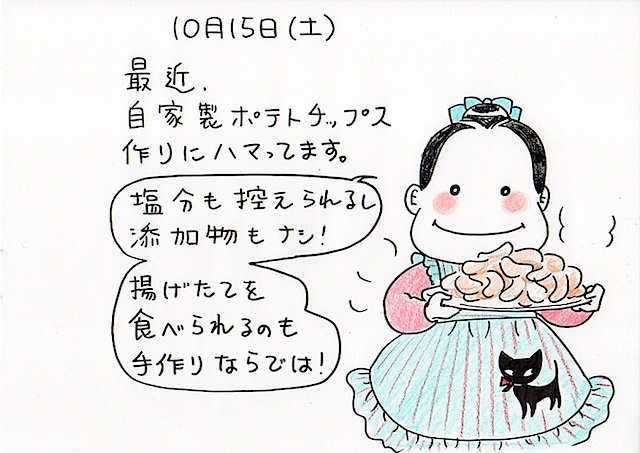 10月15日(土)
最近、
自家製ポテトチップス
作りにハマってます。
塩分も控えられるし
添加物もナシ!
揚げたてを
食べられるのも
手作りならでは!